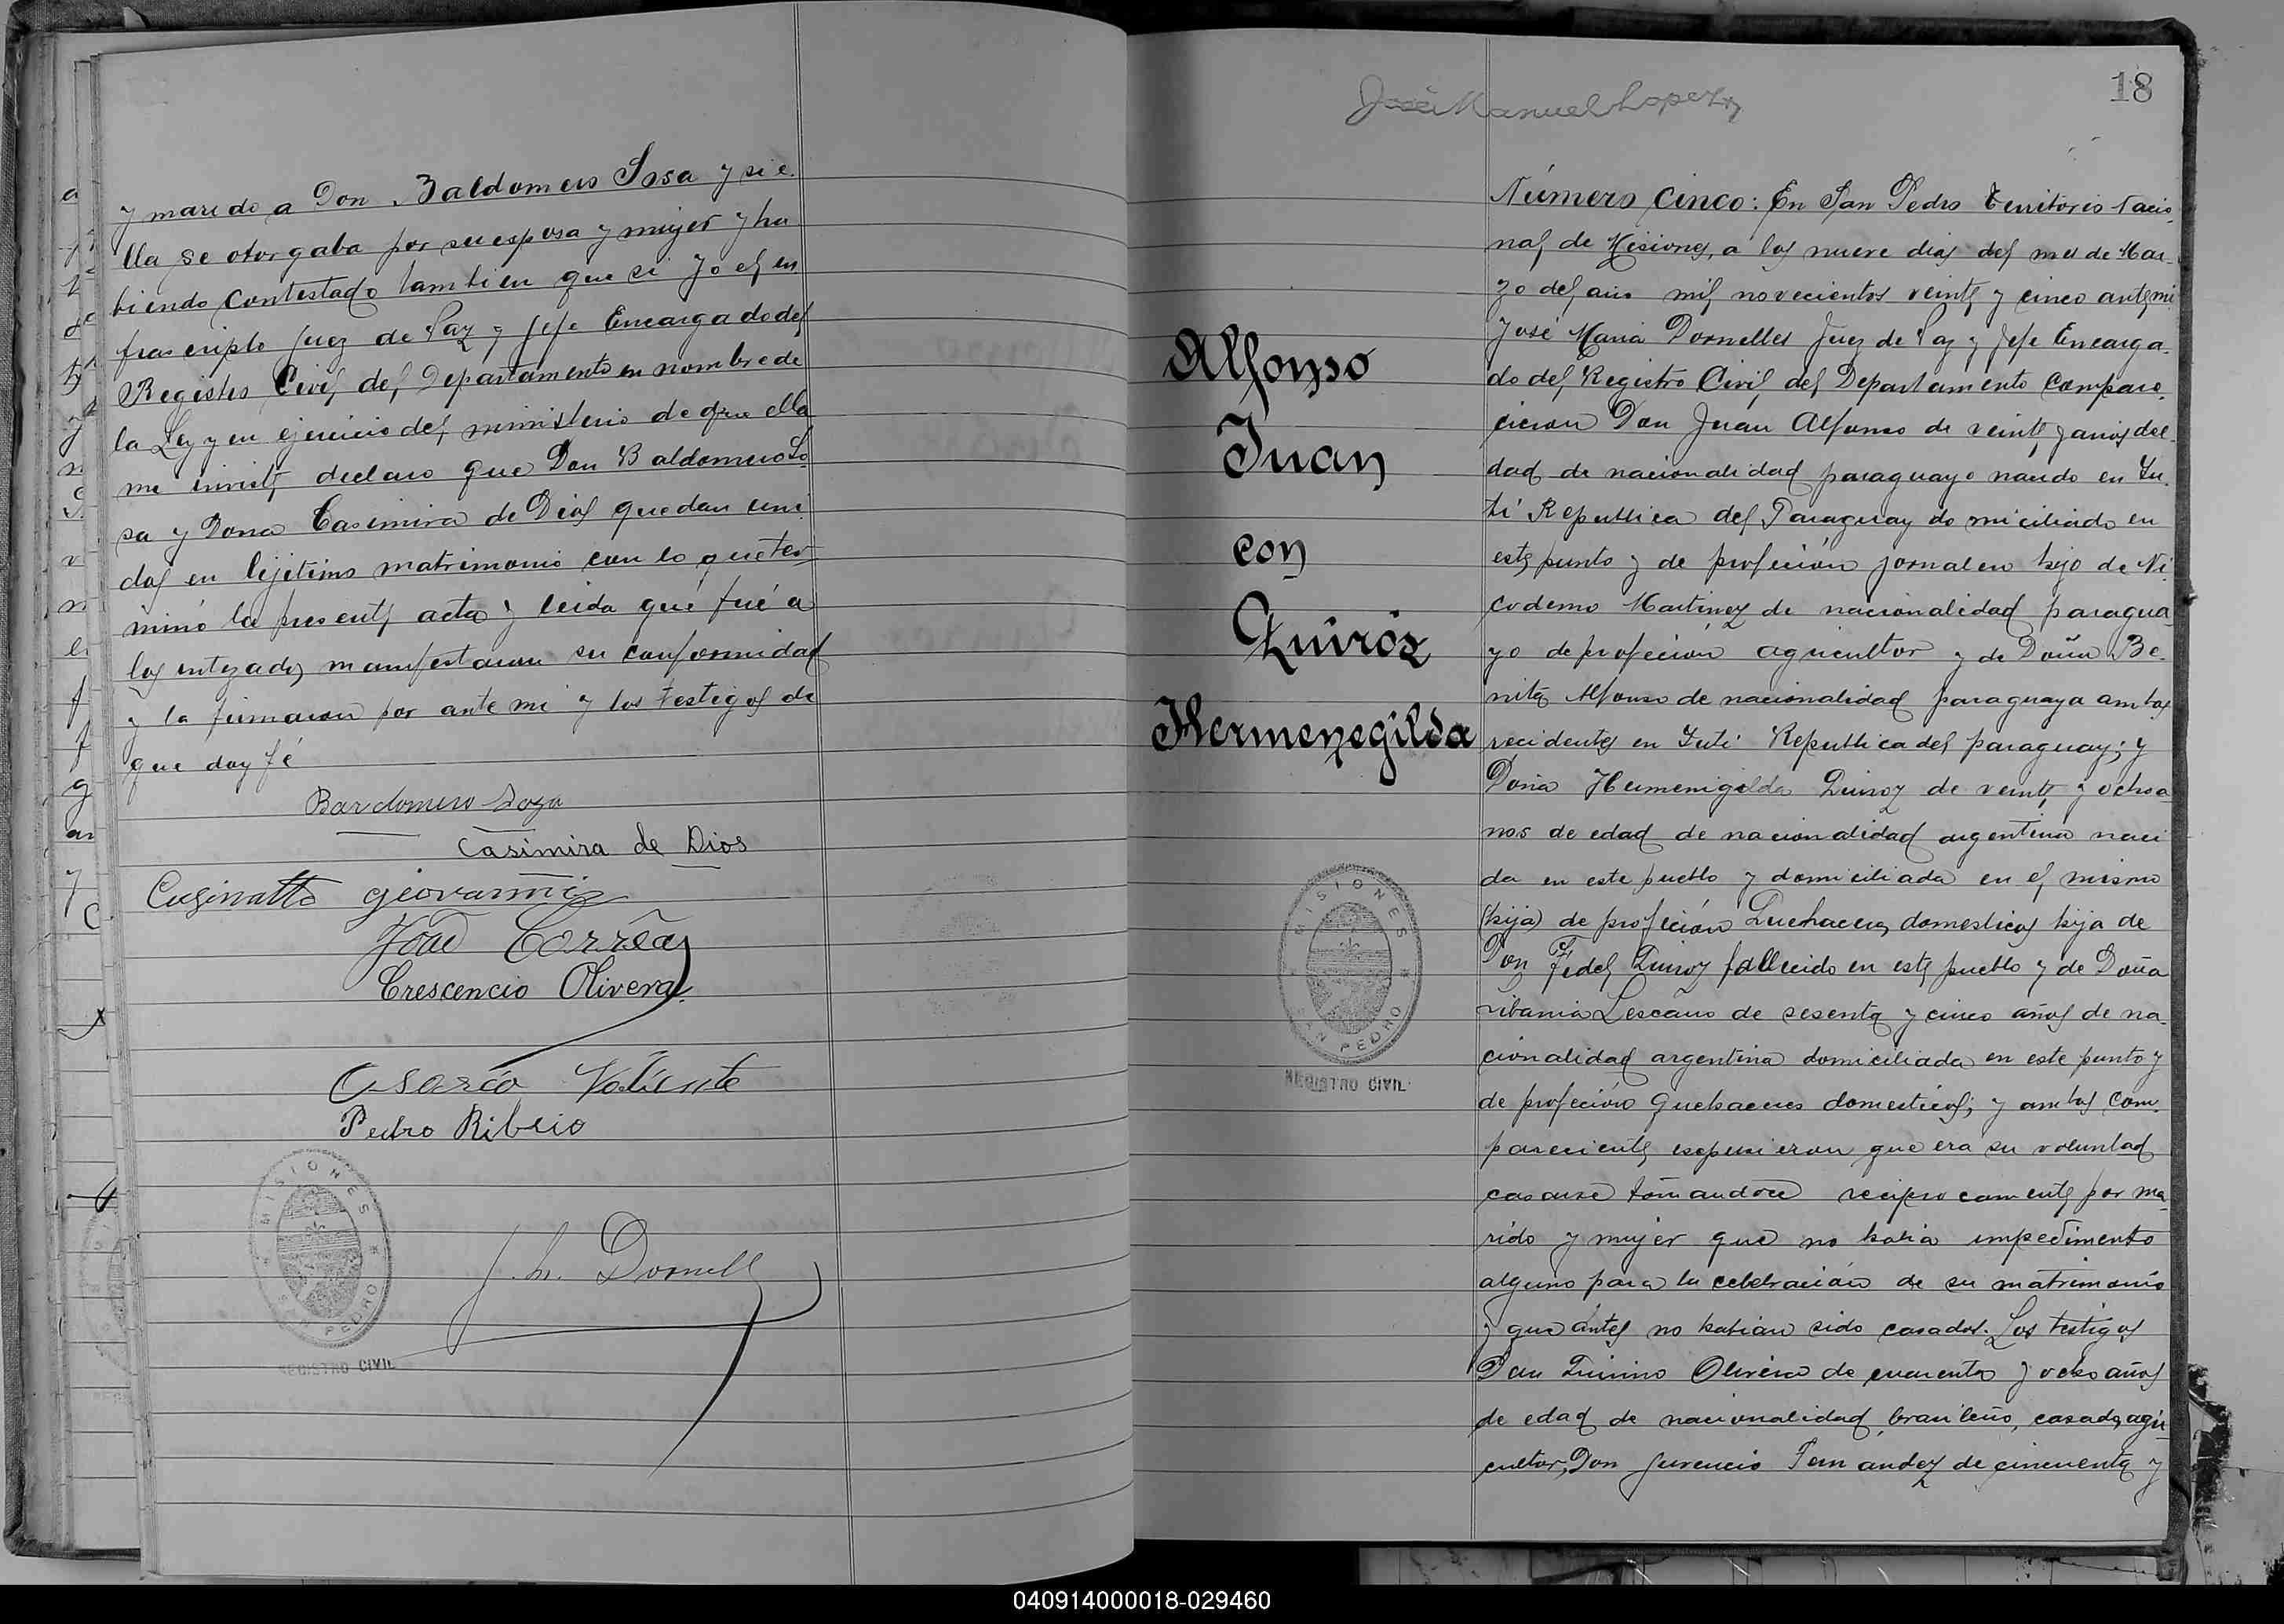 y marido a Don Baldomero Sosa y si e
lla se otorgaba por su esposa y mujer y ha
biendo contestado tambien que si yo el in
frascripto Juez de Paz y Jefe Encargado del
Registro Civil del Departamento en nombre de
la Ley y en ejercicio del ministerio de que ella
me inviste declaro que Don Baldomero So
sa y Dona Casimira de Dios quedan uni
dos en lejitimo matrimonio con lo que ter
minó la presente acta y leida que fué a
los interados manifestaron su conformidad
y la firmaron por ante mi y los testigos de
que doy fé
Bardomero Soza
Casimira de Dios
Cusinatto Giovanni
João Corrêa
Crescencio Olivera
Osorio Valiente
Pedro Ribeio
MISIONES
SAN PEDRO
REGISTRO CIVIL
J. M. Dornell
José Manuel Lopez
18
Alfonso
Juan
con
Quiróz
Hermenegilda
MISIONES
SAN PEDRO
REGISTRO CIVIL
Número cinco: En San Pedro Territorio Nacio
nal de Misiones, a los nueve dias del mes de Mar
zo del año mil novecientos veinte y cinco ante mi
José Maria Dornelles Juez de Paz y Jefe Encarga
do del Registro Civil del Departamento compare
cieron Don Juan Alfonso de veinte y años de e
dad de nacionalidad paraguayo nacido en Yu
ti Republica del Paraguay domiciliado en
este punto y de profecion jornalero hijo de Ni
codemo Martinez de nacionalidad paragua
yo de profecion agricultor y de Doña Be
nita Alfonso de nacionalidad paraguaya ambos
recidentes en Yuti Republica del paraguay; y
Doña Hermenigilda Quiroz de veinte y ocho a
ños de edad de nacionalidad argentina naci
da en este pueblo y domiciliada en el mismo
(hija) de profeción Quehaceres domesticos hija de
Don Fidel Quiroz fallecido en este pueblo y de Doña
Libania Lescano de sesenta y cinco años de na
cionalidad argentina domiciliada en este punto y
de profeción Quehaceres domesticos; y ambos com
parecientes esepusieron que era su voluntad
casarse tomandose reciprocamente por ma
rido y mujer que no habia impedimento
alguno para la celebración de su matrimonio
y que antes no habian sido casados. Los testigos
Don Quirino Olivera de cuarenta y ocho años
de edad de nacionalidad brasileño, casado, agri
cultor, Don Juvencio Fernandez de cincuenta y
040914000018-029460